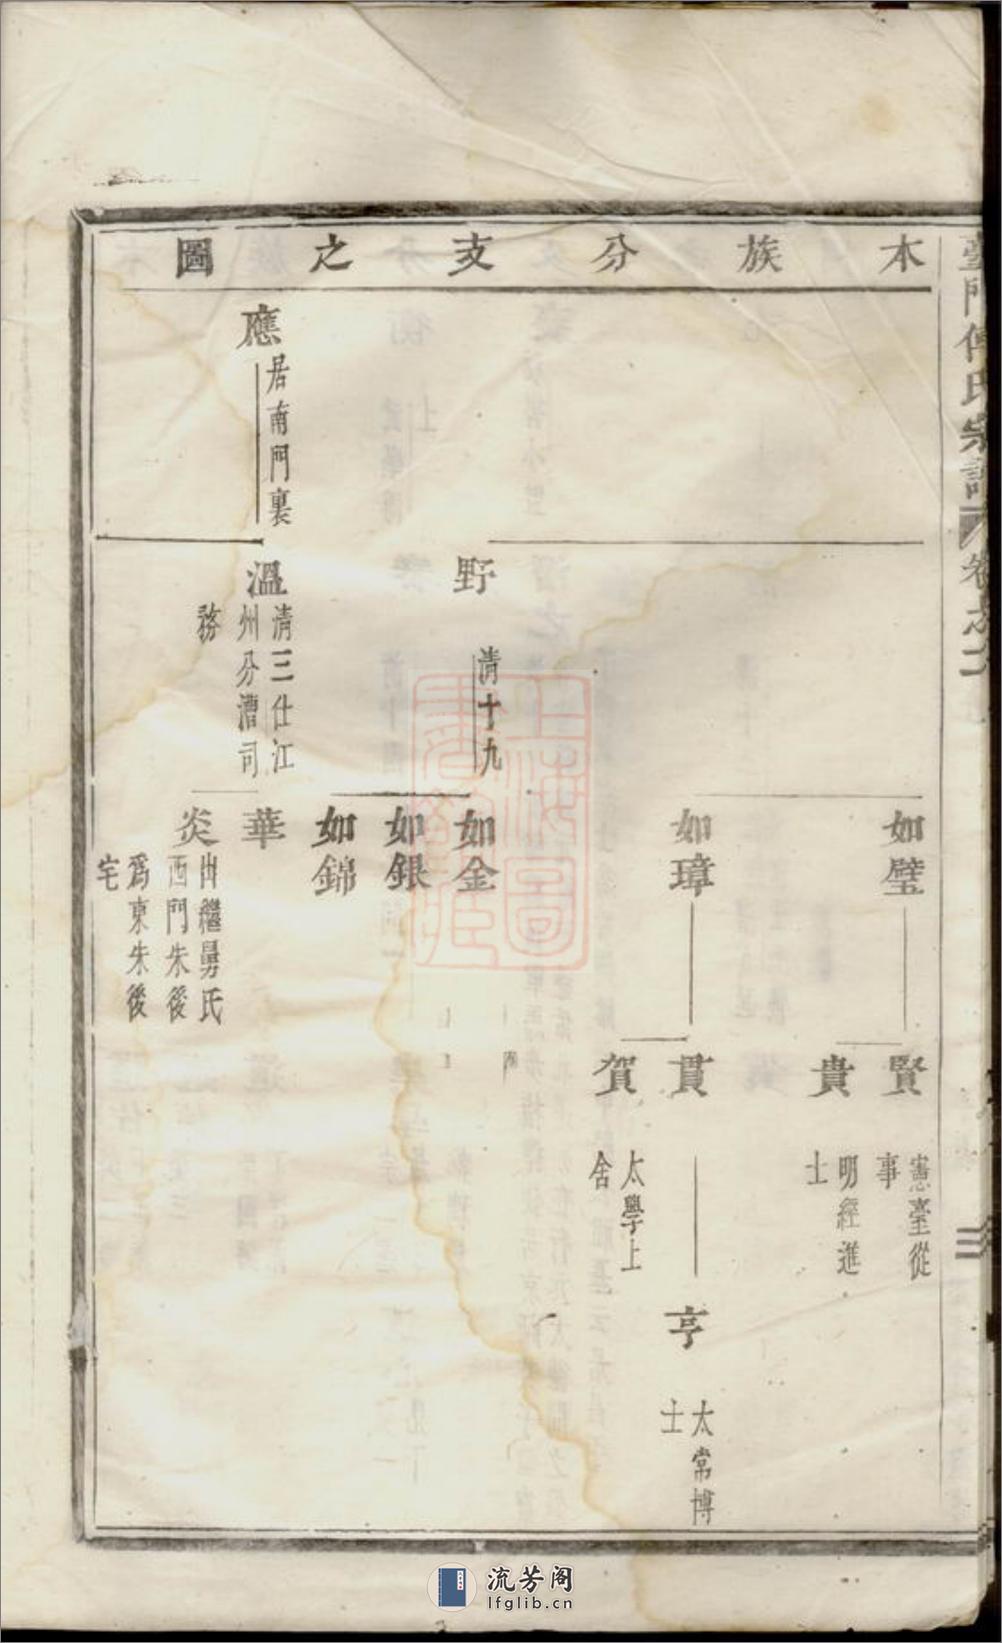 本族分支之圖
傅氏宗譜 卷之二
三
如璧
賢
憲臺從
事
貴
明經進
士
如璋
貫
亨
太常博
士
賀
太學上
舍
野
清十九
如金
如銀
如錦
應
居南門裏
溫
清三仕江
州分漕司
務
華
炎
出繼舅氏
西門朱後
爲東朱後
宅
上海圖
書館藏
流芳阁
lfglib.cn